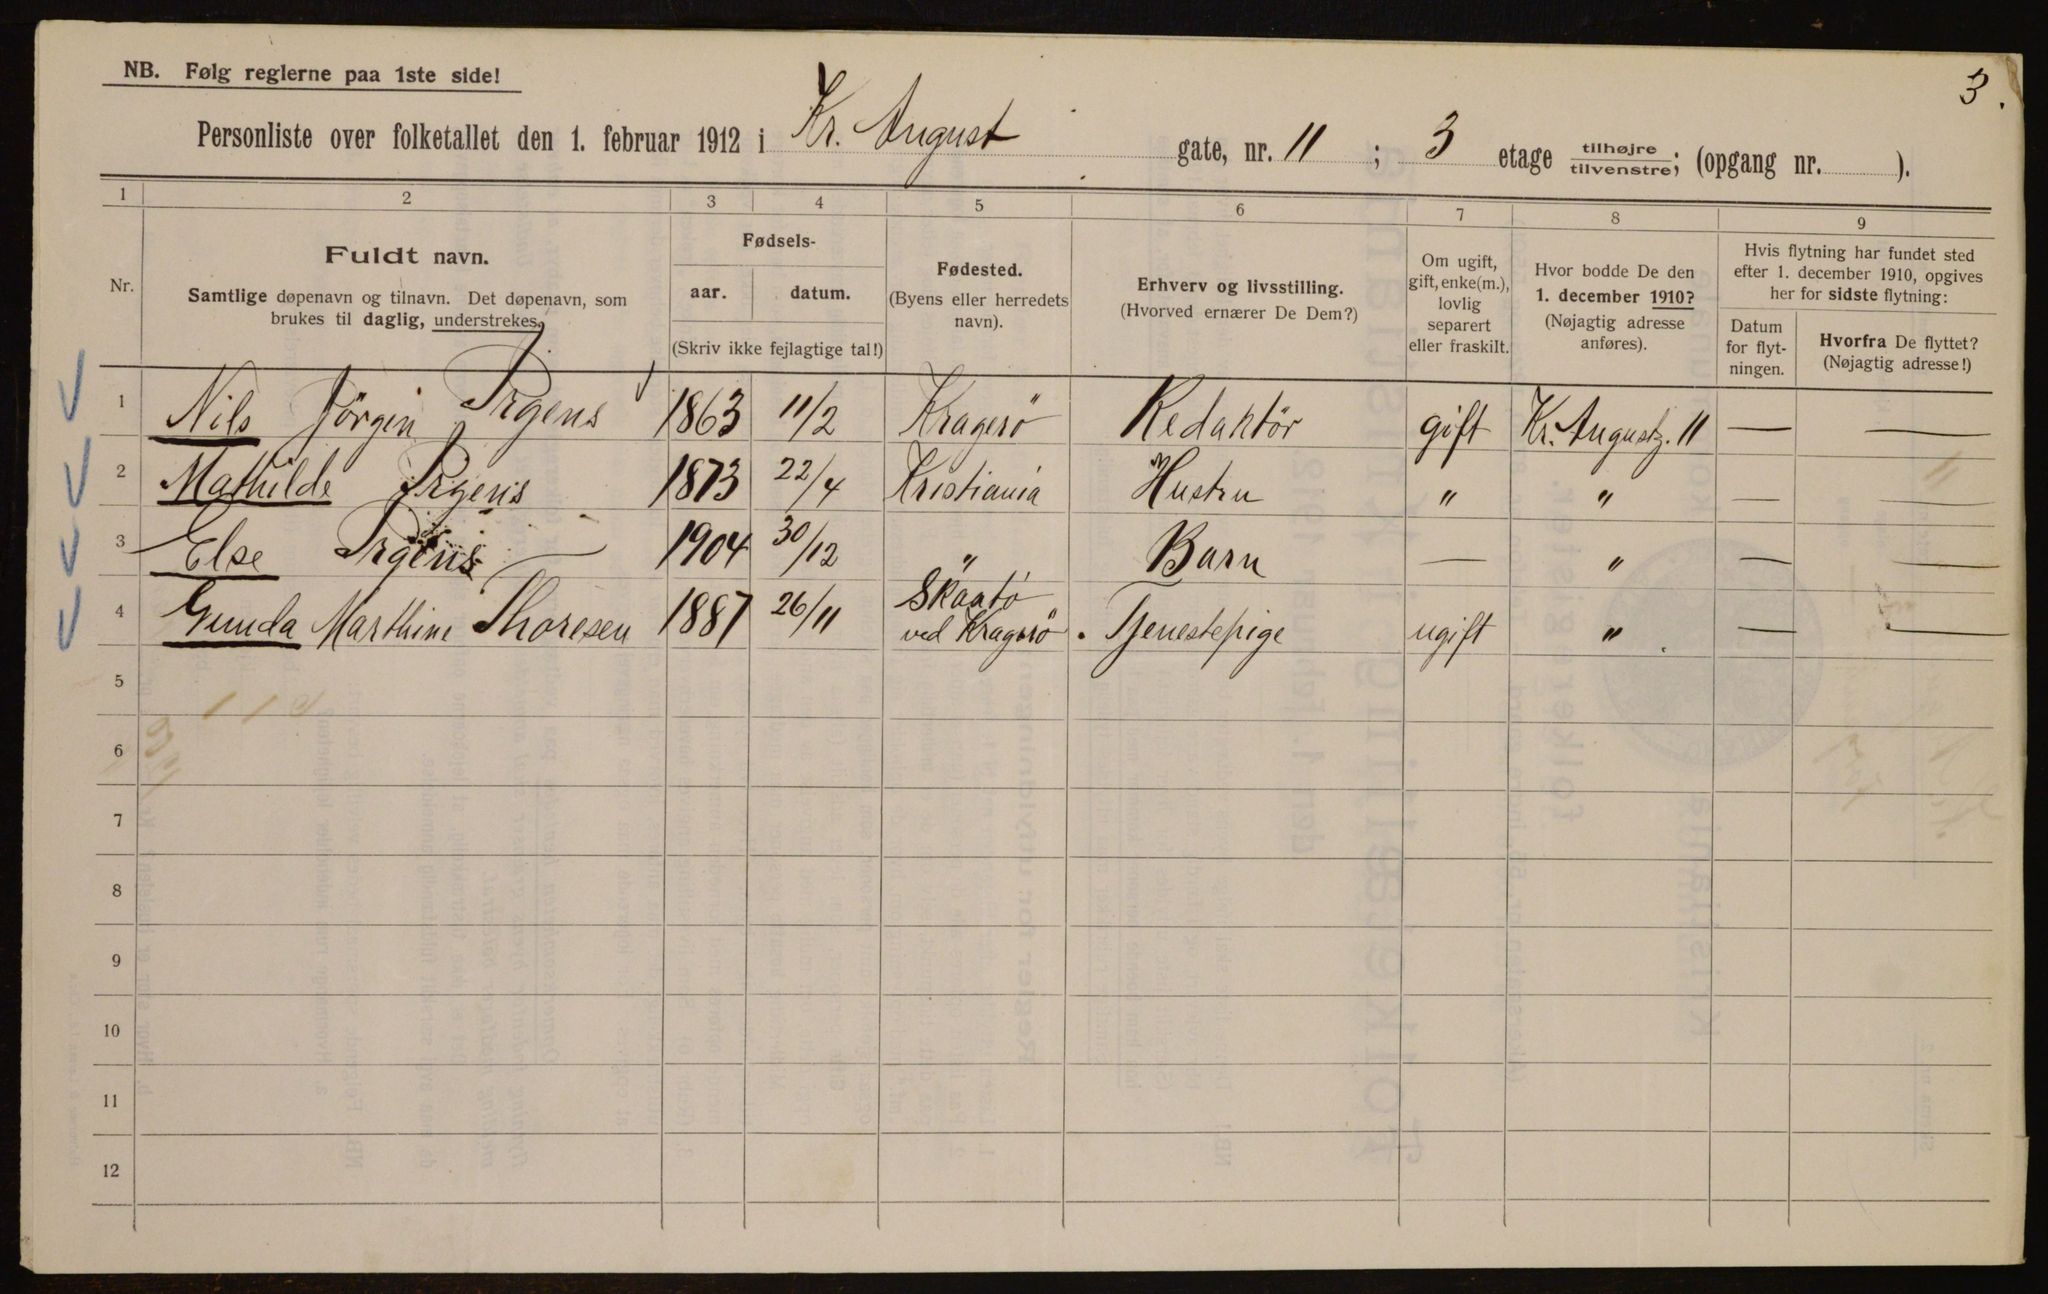 3.
NB. Følg reglerne paa 1ste side!
Personliste over folketallet den 1. februar 1912 i Kr. August gate, nr. 11 ; 3 etage tilhøjre/tilvenstre; (opgang nr. ).
1 2 3 4 5 6 7 8 9
Nr.
Fuldt navn.
Samtlige døpenavn og tilnavn. Det døpenavn, som
brukes til daglig, understrekes.
Fødsels-
aar. datum.
(Skriv ikke fejlagtige tal!)
Fødested.
(Byens eller herredets
navn).
Erhverv og livsstilling.
(Hvorved ernærer De Dem?)
Om ugift,
gift, enke(m.),
lovlig
separert
eller fraskilt.
Hvor bodde De den
1. december 1910?
(Nøjagtig adresse
anføres).
Hvis flytning har fundet sted
efter 1. december 1910, opgives
her for sidste flytning:
Datum
for flyt-
ningen.
Hvorfra De flyttet?
(Nøjagtig adresse!)
1 Nils Jörgen Irgens 1863 11/2 Kragerö Redaktör gift Kr. Augustg. 11 — —
2 Mathilde Irgens 1873 22/4 Kristiania Hustru " " — —
3 Else Irgens — 1904 30/12 " Barn — " — —
4 Gunda Marthine Thoresen 1887 26/11 Skaatö ved Kragerö. Tjenestepige ugift " — —
5
6
7
8
9
10
11
12